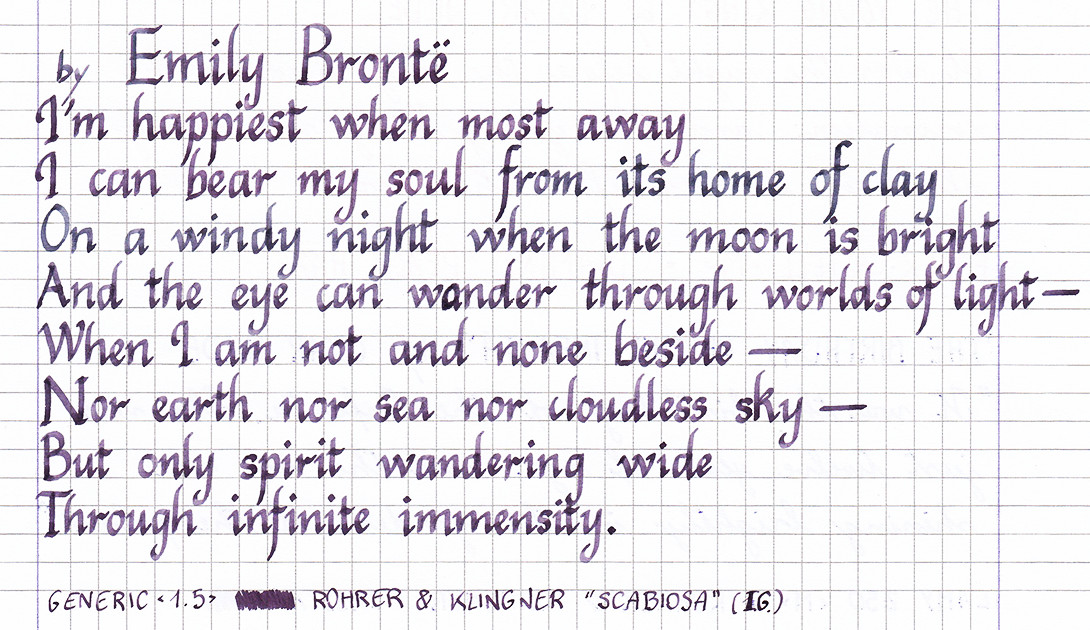 by Emily Brontë
I'm happiest when most away
I can bear my soul from its home of clay
On a windy night when the moon is bright
And the eye can wander through worlds of light—
When I am not and none beside —
Nor earth nor sea nor cloudless sky —
But only spirit wandering wide
Through infinite immensity.
GENERIC <1.5> ROHRER & KLINGNER "SCABIOSA" (IG)